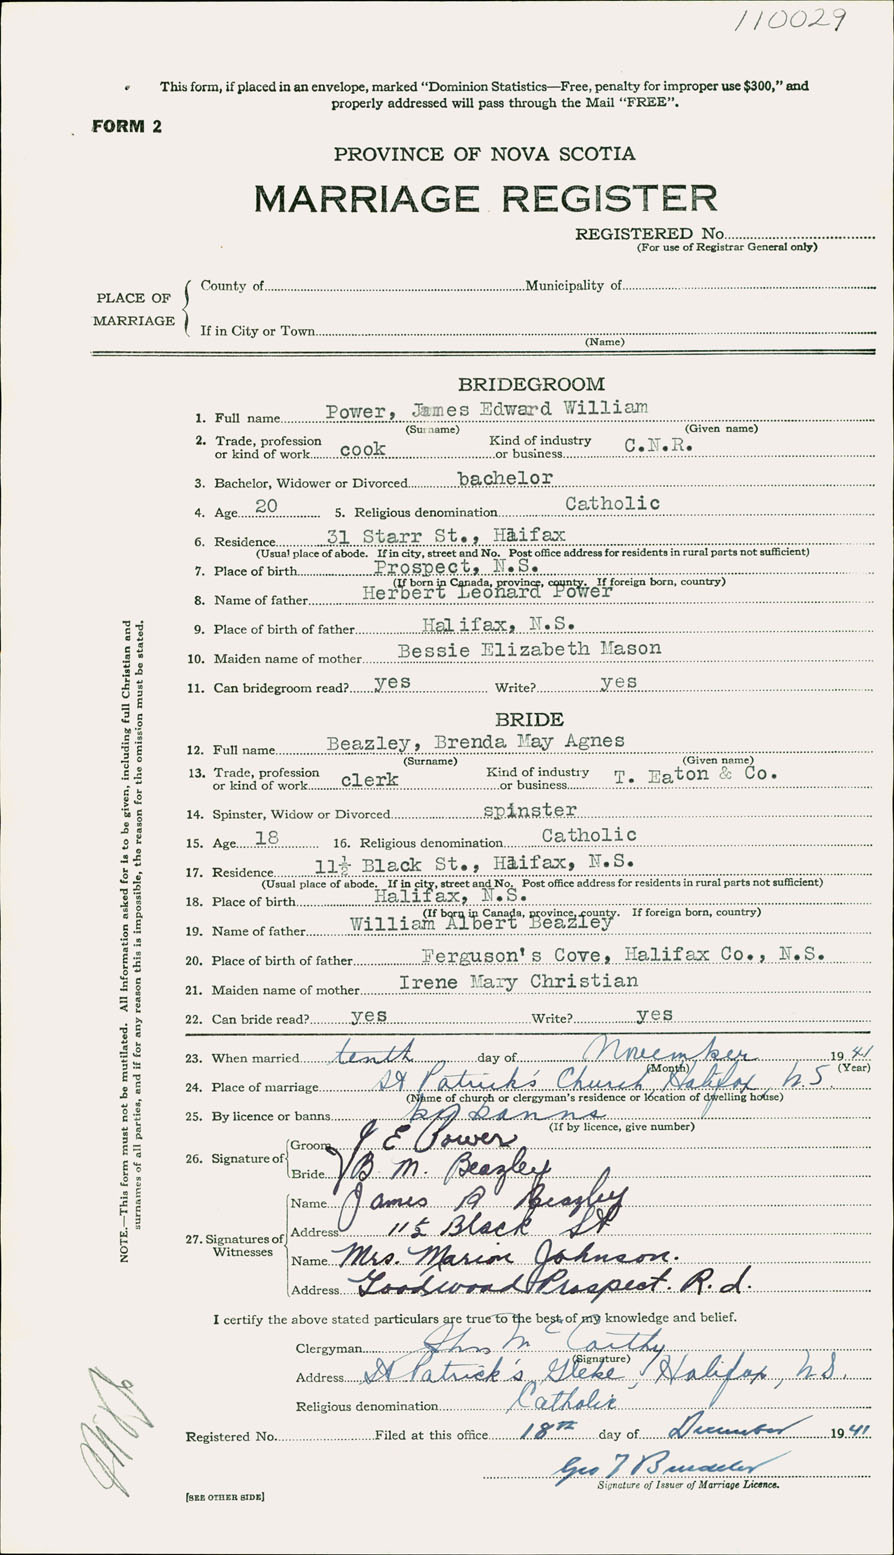 110029
This form, if placed in an envelope, marked “Dominion Statistics—Free, penalty for improper use $300,” and
properly addressed will pass through the Mail “FREE”.
FORM 2
PROVINCE OF NOVA SCOTIA
MARRIAGE REGISTER
REGISTERED No.
(For use of Registrar General only)
PLACE OF MARRIAGE
County of Municipality of
If in City or Town
(Name)
BRIDEGROOM
1. Full name Power, James Edward William
(Surname) (Given name)
2. Trade, profession or kind of work cook Kind of industry or business C.N.R.
3. Bachelor, Widower or Divorced bachelor
4. Age 20 5. Religious denomination Catholic
6. Residence 31 Starr St., Halifax
(Usual place of abode. If in city, street and No. Post office address for residents in rural parts not sufficient)
7. Place of birth Prospect, N.S.
(If born in Canada, province, county. If foreign born, country)
8. Name of father Herbert Leonard Power
9. Place of birth of father Halifax, N.S.
10. Maiden name of mother Bessie Elizabeth Mason
11. Can bridegroom read? yes Write? yes
BRIDE
12. Full name Beazley, Brenda May Agnes
(Surname) (Given name)
13. Trade, profession or kind of work clerk Kind of industry or business T. Eaton & Co.
14. Spinster, Widow or Divorced spinster
15. Age 18 16. Religious denomination Catholic
17. Residence 11½ Black St., Halifax, N.S.
(Usual place of abode. If in city, street and No. Post office address for residents in rural parts not sufficient)
18. Place of birth Halifax, N.S.
(If born in Canada, province, county. If foreign born, country)
19. Name of father William Albert Beazley
20. Place of birth of father Ferguson's Cove, Halifax Co., N.S.
21. Maiden name of mother Irene Mary Christian
22. Can bride read? yes Write? yes
23. When married tenth day of November 1941
(Month) (Year)
24. Place of marriage St Patrick's Church, Halifax, N.S.
(Name of church or clergyman's residence or location of dwelling house)
25. By licence or banns by banns
(If by licence, give number)
26. Signature of Groom J E Power
Bride B M. Beazley
27. Signatures of Witnesses
Name James A Beazley
Address 11½ Black St
Name Mrs. Marion Johnson.
Address Goodwood Prospect. R.d.
I certify the above stated particulars are true to the best of my knowledge and belief.
Clergyman McCarthy
(Signature)
Address St Patrick's Glebe, Halifax, N.S.
Religious denomination Catholic
Registered No. Filed at this office 18th day of December 1941
Geo T
Signature of Issuer of Marriage Licence.
[SEE OTHER SIDE]
NOTE.—This form must not be mutilated. All information asked for is to be given, including full Christian and
surnames of all parties, and if for any reason this is impossible, the reason for the omission must be stated.